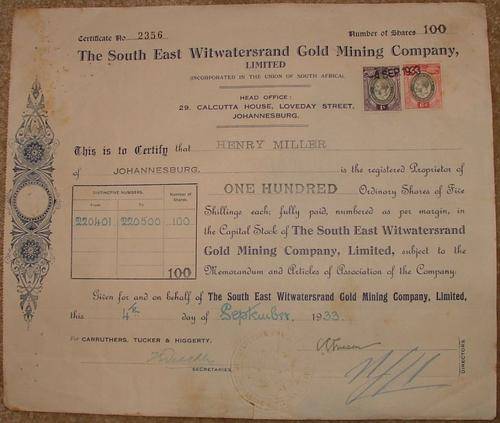 Certificate No 2356 Number of Shares 100
The South East Witwatersrand Gold Mining Company,
LIMITED
(INCORPORATED IN THE UNION OF SOUTH AFRICA)
4 SEP 1933
HEAD OFFICE:
29. CALCUTTA HOUSE, LOVEDAY STREET,
JOHANNESBURG.
This is to Certify that HENRY MILLER
of JOHANNESBURG. is the registered Proprietor of
ONE HUNDRED Ordinary Shares of Five
Shillings each; fully paid, numbered as per margin, in
the Capital Stock of The South East Witwatersrand
Gold Mining Company, Limited, subject to the
Memorandum and Articles of Association of the Company.
DISTINCTIVE NUMBERS. Number of Shares.
From To
220401 220500 100
100
Given for and on behalf of The South East Witwatersrand Gold Mining Company, Limited,
this 4th day of September 1933.
For CARRUTHERS, TUCKER & HIGGERTY.
SECRETARIES
DIRECTORS